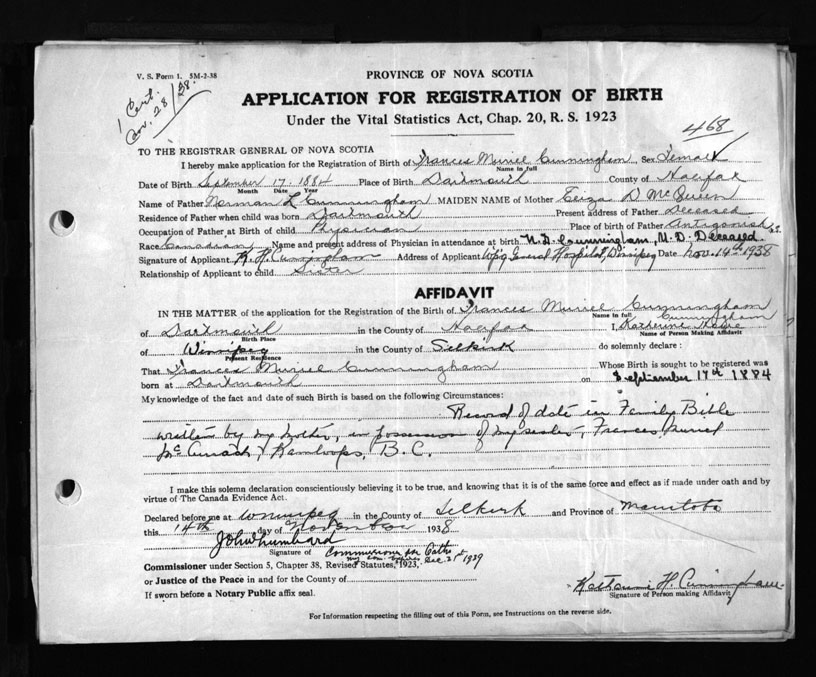 V. S. Form 1. 5M-2-38
1 Cert.
28/38.
PROVINCE OF NOVA SCOTIA
APPLICATION FOR REGISTRATION OF BIRTH
Under the Vital Statistics Act, Chap. 20, R. S. 1923
468
TO THE REGISTRAR GENERAL OF NOVA SCOTIA
I hereby make application for the Registration of Birth of Frances Muriel Cunningham Sex Female
Name in full
Date of Birth September 17. 1884 Place of Birth Dartmouth County of Halifax
Month Date Year
Name of Father Norman L Cunningham MAIDEN NAME of Mother Eliza D McQueen
Residence of Father when child was born Dartmouth Present address of Father Deceased
Occupation of Father at Birth of child Physician Place of Birth of Father Antigonish
Race Canadian Name and present address of Physician in attendance at birth Cunningham, M. D. Deceased.
Signature of Applicant K. H. Cunningham Address of Applicant Wpg General Hospital, Winnipeg Date Nov. 14th 1938
Relationship of Applicant to child Sister
AFFIDAVIT
IN THE MATTER of the application for the Registration of the Birth of Frances Muriel Cunningham
Name in full
of Dartmouth in the County of Halifax I, Katherine Cunningham
Birth Place Name of Person Making Affidavit
of Winnipeg in the County of Selkirk do solemnly declare :
Present Residence
That Frances Muriel Cunningham Whose Birth is sought to be registered was
born at Dartmouth on September 17th 1884
My knowledge of the fact and date of such Birth is based on the following Circumstances:
Record of date in Family Bible
written by my mother, in possession of my sister, Frances Muriel
Kamloops, B. C.
I make this solemn declaration conscientiously believing it to be true, and knowing that it is of the same force and effect as if made under oath and by
virtue of The Canada Evidence Act.
Declared before me at Winnipeg in the County of Selkirk and Province of Manitoba
this 14th day of November 1938
Signature of Commissioner for Oaths
my com. expires Dec. 21st 1939
Commissioner under Section 5, Chapter 38, Revised Statutes, 1923,
or Justice of the Peace in and for the County of
If sworn before a Notary Public affix seal.
Katharine H. Cunningham
Signature of Person making Affidavit
For Information respecting the filling out of this Form, see Instructions on the reverse side.